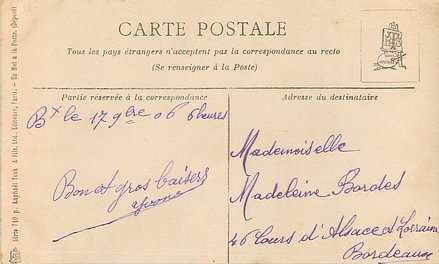 CARTE POSTALE
Tous les pays étrangers n'acceptent pas la correspondance au recto
(Se renseigner à la Poste)
Partie réservée à la correspondance
Adresse du destinataire
Bx le 17 9bre 06 6 heures
Bon et gros baisers
Yvonne
Mademoiselle
Madeleine Bordes
46 Cours d'Alsace et Lorraine
Bordeaux
Série 710 p. Raphaël Tuck & Fils, Ltd. Editeurs, Paris. — Un Mot à la Poste. (Déposé)